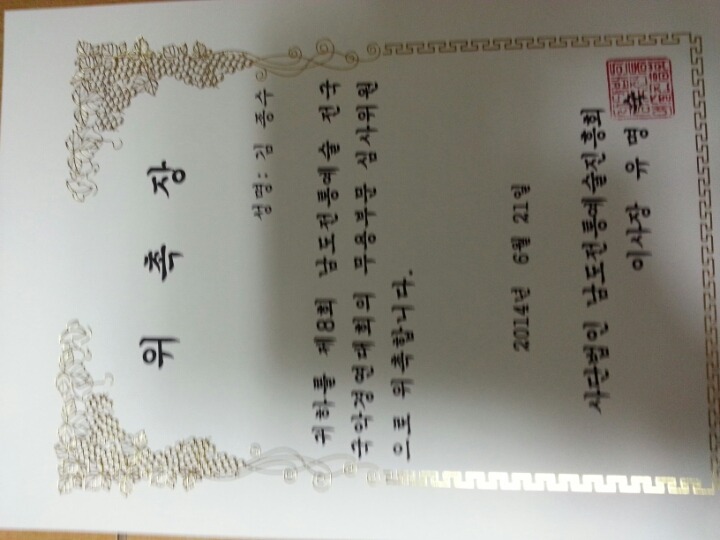 위 촉 장
성명: 김 종수
귀하를 제8회 남도전통예술 전국
국악경연대회의 무용부문 심사위원
으로 위촉합니다.
2014년 6월 21일
사단법인 남도전통예술진흥회
이사장 유 명